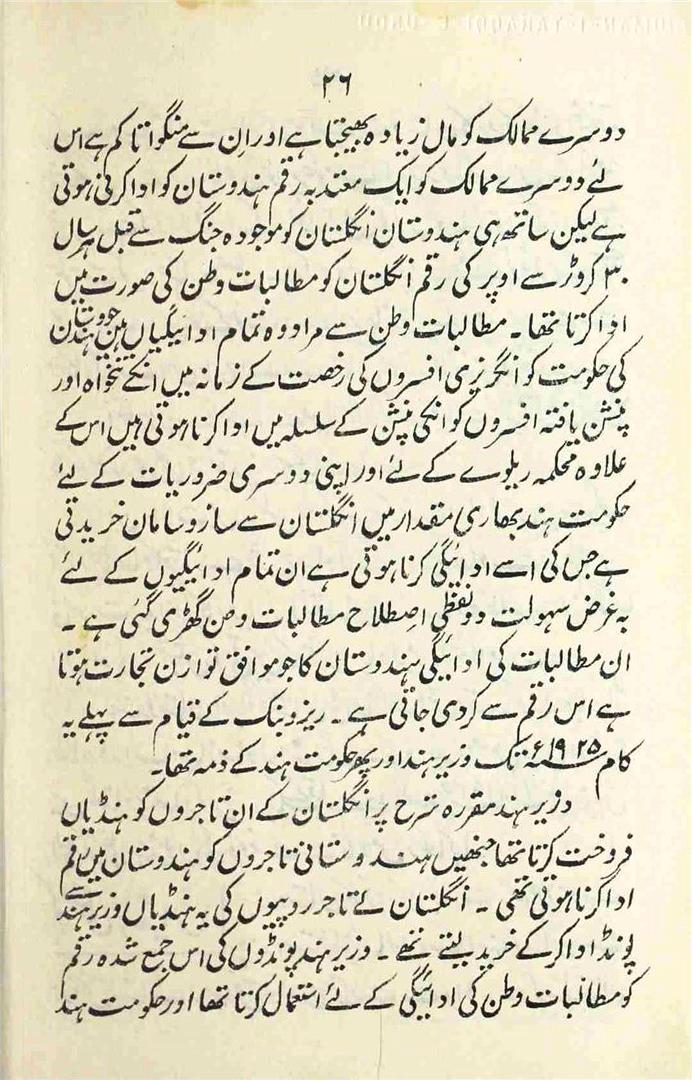 ۲۶
دوسرے ممالک کو مال زیادہ بھیجتا ہے اور ان سے منگواتا کم ہے اس
لئے دوسرے ممالک کو ایک معتدبہ رقم ہندوستان کو ادا کرنی ہوتی
ہے لیکن ساتھ ہی ہندوستان انگلستان کو موجودہ جنگ سے قبل ہر سال
۳۰ کروڑ سے اوپر کی رقم انگلستان کو مطالبات وطن کی صورت میں
ادا کرتا تھا۔ مطالبات وطن سے مراد وہ تمام ادائیگیاں ہیں جو ہندوستان
کی حکومت کو انگریزی افسروں کی رخصت کے زمانہ میں انکے تنخواہ اور
پنشن یافتہ افسروں کو انکی پنشن کے سلسلہ میں ادا کرنا ہوتی ہیں اس کے
علاوہ محکمہ ریلوے کے لئے اور اپنی دوسری ضروریات کے لئے
حکومت ہند بھاری مقدار میں انگلستان سے ساز و سامان خریدتی
ہے جس کی اسے ادائیگی کرنا ہوتی ہے ان تمام ادائیگیوں کے لئے
بہ غرض سہولت دو لفظی اصطلاح مطالبات وطن گھڑی گئی ہے ۔
ان مطالبات کی ادائیگی ہندوستان کا جو موافق توازن تجارت ہوتا
ہے اس رقم سے کر دی جاتی ہے ۔ ریزو بنک کے قیام سے پہلے یہ
کام ۱۹۲۵ء تک وزیر ہند اور پھر حکومت ہند کے ذمہ تھا۔
وزیر ہند مقررہ شرح پر انگلستان کے ان تاجروں کو ہنڈیاں
فروخت کرتا تھا جنھیں ہندوستانی تاجروں کو ہندوستان میں رقم
ادا کرنا ہوتی تھی ۔ انگلستان کے تاجر روپیوں کی یہ ہنڈیاں وزیر ہند سے
پونڈ ادا کر کے خرید لیتے تھے ۔ وزیر ہند پونڈوں کی اس جمع شدہ رقم
کو مطالبات وطن کی ادائیگی کے لئے استعمال کرتا تھا اور حکومت ہند